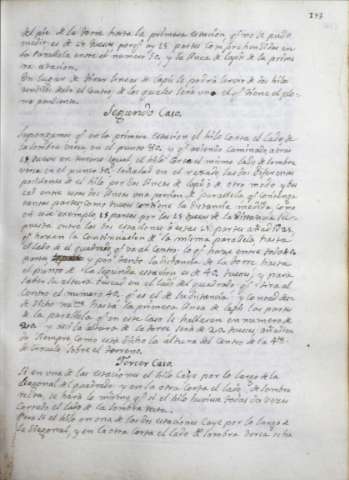 193
del pie de la torre hasta la primera estacion, q̃ no se pudo
medir; es de 25 tuesas porq̃ ay 25 partes comprehendidas en
la Paralela entre el numero 50, y la linea de lapiz de la prime
ra estacion.
En lugar de tirar lineas de lapiz se podra servir de dos hilos
tendidos del centro, de los quales sera uno el q̃ tiene el plo
mo pendiente.
Segundo Caso.
Supongamos q̃ en la primera estacion el hilo corta el lado de
la sombra versa en el punto 80. y q̃ aviendo caminado atras
15 tuesas en terreno igual el hilo corta el mismo lado de sombra
versa en el punto 50. señalad en el los dos diferentes
del hilo por dos lineas de lapiz o de otro modo y bus
cad entre estas dos lineas una porcion de paralela q̃ contenga
tantas partes como tuesas contiene la distancia medida, como
en este exemplo 15 partes por las 15 tuesas de la distancia su
puesta entre las dos estaciones a estas 15 partes añadid 25,
q̃ hacen la continuacion de la misma paralela hasta
el lado de el quadrado q̃ va al centro lo q̃ hace entre todo 40
partes y por tanto la distancia de la torre hasta
el punto de la segunda estacion es de 40. tuesas, y para
saber su altura buscad en el lado del quadrado q̃ tira al
Centro el numero 40, q̃ es el de la distancia y contad des
de dicho num.º hasta la primera linea de lapiz las partes
de la paralela q̃ en este caso se hallaren en numero de
20. y asi la altura de la torre sera de 20 tuesas, añadien
do siempre como esta dicho la altura del centro de la 4ª.
de circulo sobre el terreno.
Tercer Caso.
Si en una de las estaciones el hilo caye por lo largo de la
diagonal del quadrado y en la otra corta el lado de sombra
recta, se hara lo mismo q̃ si el hilo huviera todas dos veces
cortado el lado de la sombra recta.
Pero si el hilo en una de las dos estaciones caye por lo largo de
la diagonal, y en la otra corta el lado de sombra versa se ha